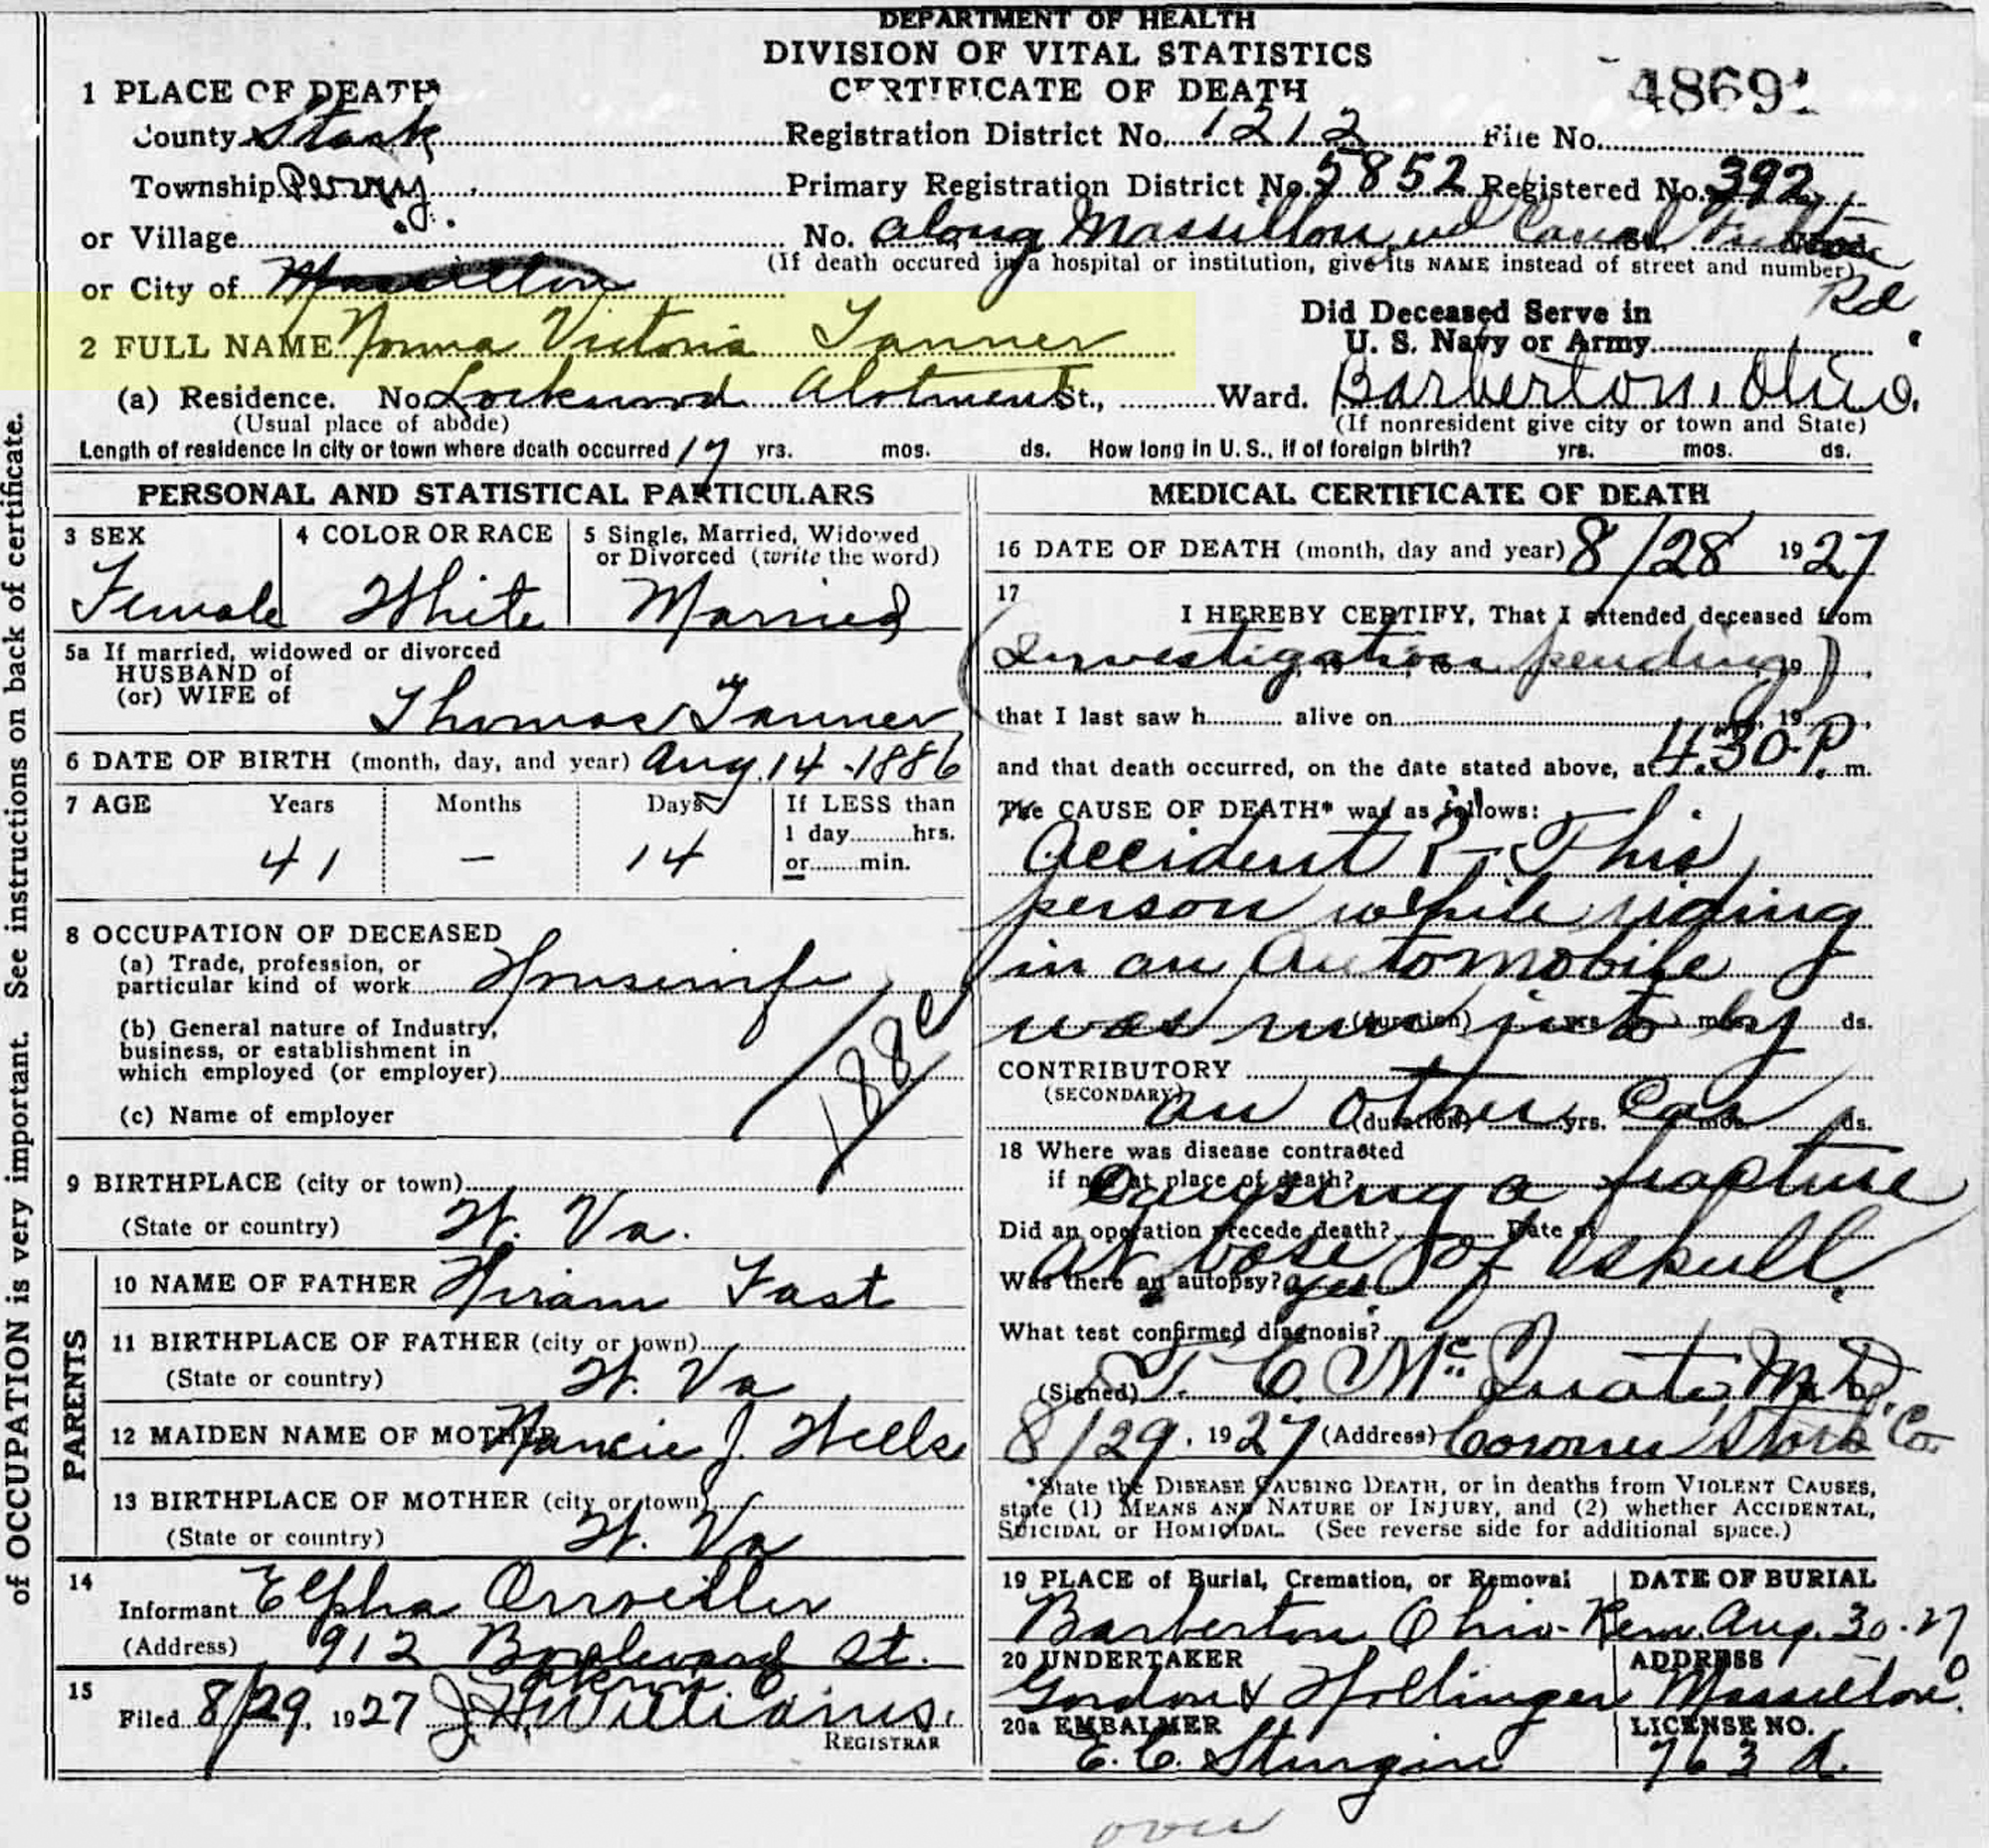 DEPARTMENT OF HEALTH
DIVISION OF VITAL STATISTICS
CERTIFICATE OF DEATH
4869
1 PLACE OF DEATH
County Stark Registration District No. 1212 File No.
Township Perry Primary Registration District No. 5852 Registered No. 392
or Village No. along Massillon Canal Fulton Rd
(If death occured in a hospital or institution, give its NAME instead of street and number)
or City of Massillon
Did Deceased Serve in
U. S. Navy or Army
2 FULL NAME Norma Victoria Tanner
(a) Residence. No. Lockwood Alotment St., Ward. Barberton, Ohio.
(Usual place of abode) (If nonresident give city or town and State)
Length of residence in city or town where death occurred 17 yrs. mos. ds. How long in U. S., if of foreign birth? yrs. mos. ds.
PERSONAL AND STATISTICAL PARTICULARS
3 SEX
Female
4 COLOR OR RACE
White
5 Single, Married, Widowed
or Divorced (write the word)
Married
5a If married, widowed or divorced
HUSBAND of
(or) WIFE of
Thomas Tanner
6 DATE OF BIRTH (month, day, and year) Aug. 14 - 1886
7 AGE Years Months Days If LESS than
1 day hrs.
or min.
41 — 14
8 OCCUPATION OF DECEASED
(a) Trade, profession, or
particular kind of work Housewife
(b) General nature of Industry,
business, or establishment in
which employed (or employer)
(c) Name of employer
188c
9 BIRTHPLACE (city or town)
(State or country) W. Va.
PARENTS
10 NAME OF FATHER Hiram Fast
11 BIRTHPLACE OF FATHER (city or town)
(State or country) W. Va
12 MAIDEN NAME OF MOTHER Nancie J. Wells
13 BIRTHPLACE OF MOTHER (city or town)
(State or country) W. Va
14
Informant Elpha
(Address) 912 Boulevard St.
Akron O
15
Filed 8/29, 1927 J. H. Williams.
REGISTRAR
MEDICAL CERTIFICATE OF DEATH
16 DATE OF DEATH (month, day and year) 8/28 1927
17
I HEREBY CERTIFY, That I attended deceased from
(Investigation pending) 19
that I last saw h alive on 19
and that death occurred, on the date stated above, at 4:30 P. m.
The CAUSE OF DEATH* was as follows:
Accident ?- This
person while riding
in an Automobile
was run into by
(duration) yrs. mos. ds.
CONTRIBUTORY
(SECONDARY)
an other Car
(duration) yrs. mos. ds.
18 Where was disease contracted
if not at place of death?
Causing a fracture
Did an operation precede death? Date of
at base of skull.
Was there an autopsy? yes
What test confirmed diagnosis?
(Signed) T. C. McQuate M. D.
8/29, 1927 (Address) Coroner Stark Co
*State the DISEASE CAUSING DEATH, or in deaths from VIOLENT CAUSES,
state (1) MEANS AND NATURE OF INJURY, and (2) whether ACCIDENTAL,
SUICIDAL or HOMICIDAL. (See reverse side for additional space.)
19 PLACE of Burial, Cremation, or Removal DATE OF BURIAL
Barberton Ohio- Rem. Aug. 30 - 27
20 UNDERTAKER ADDRESS
Gordon & Hollinger Massillon O.
20a EMBALMER LICENSE NO.
E. C. Sturgin 763 A.
over
of OCCUPATION is very important. See instructions on back of certificate.